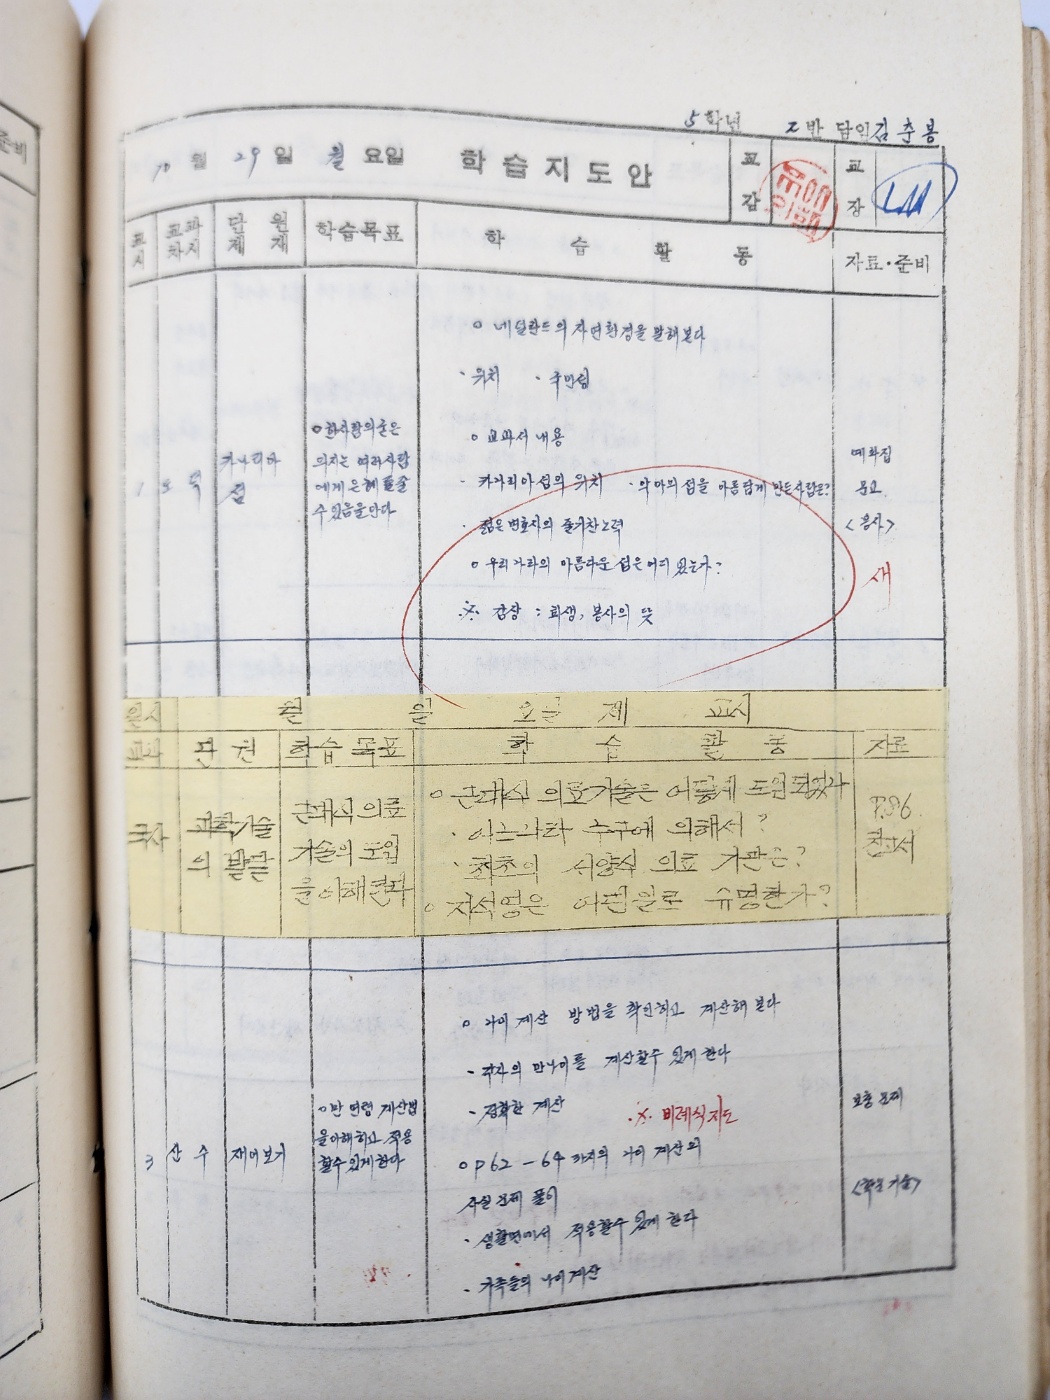 5학년 2반 담임 김춘봉
10월 29일 월요일 학습지도안 교감 교장
교시 교과 차시 단원 제재 학습목표 학습활동 자료·준비
o 네델란드의 자연환경을 말해본다
· 위치 · 국민성
o 교과서 내용
· 카나리아섬의 위치 · 악마의 섬을 아름답게 만든사람은?
· 젊은 변호사의 줄기찬 노력
o 우리나라의 아름다운 섬은 어디 있는가?
※ 감상 : 희생, 봉사의 뜻
1
카나리아
섬
o 한사람의
의지는 여러사람
에게 은혜를 줄
수 있음을 안다
예화집
<봉사>
새
월일 월 일 요일 제 교시
교과 단원 학습목표 학습활동 자료
국사
과학기술
의 발달
근대식 의료
기술의 도입
을 이해한다
o 근대식 의료기술은 어떻게 도입되었나
· 어느나라 누구에 의해서?
· 최초의 서양식 의료 기관은?
o 지석영은 어떤일로 유명한가?
P.86.
참고서
3 산수 재어보기
o 만 연령 계산법
을 이해하고 적용
할수 있게 한다
o 나이 계산 방법을 확인하고 계산해 본다
- 각자의 만나이를 계산할수 있게 한다
- 정확한 계산
※ 비례식 지도
o P62-64 까지의 나이 계산의
사실문제 풀이
· 생활면에서 적용할수 있게 한다
· 가족들의 나이 계산
보충문제